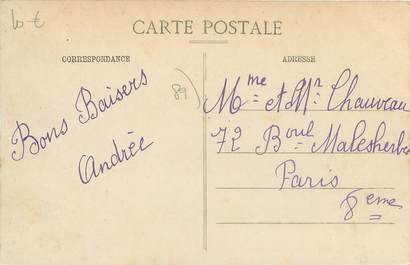 6 €
CARTE POSTALE
CORRESPONDANCE
ADRESSE
Bons Baisers
Andrée
89
Mme et Mr Chauveau
72 Boul Malesherbes
Paris
8eme